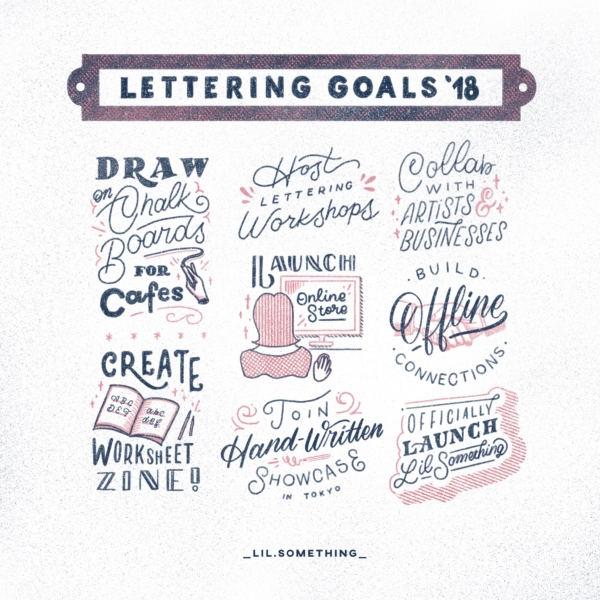 LETTERING GOALS '18
DRAW
on Chalk
Boards
FOR
Cafes
CREATE
ABC
DEF
abc
def
WORKSHEET
ZINE!
Host
LETTERING
Workshops
LAUNCH
Online
Store
JOIN
Hand-Written
SHOWCASE
IN TOKYO
Collab
WITH
ARTISTS &
BUSINESSES
· BUILD ·
Offline
· CONNECTIONS ·
OFFICIALLY
LAUNCH
Lil Something
_LIL.SOMETHING_